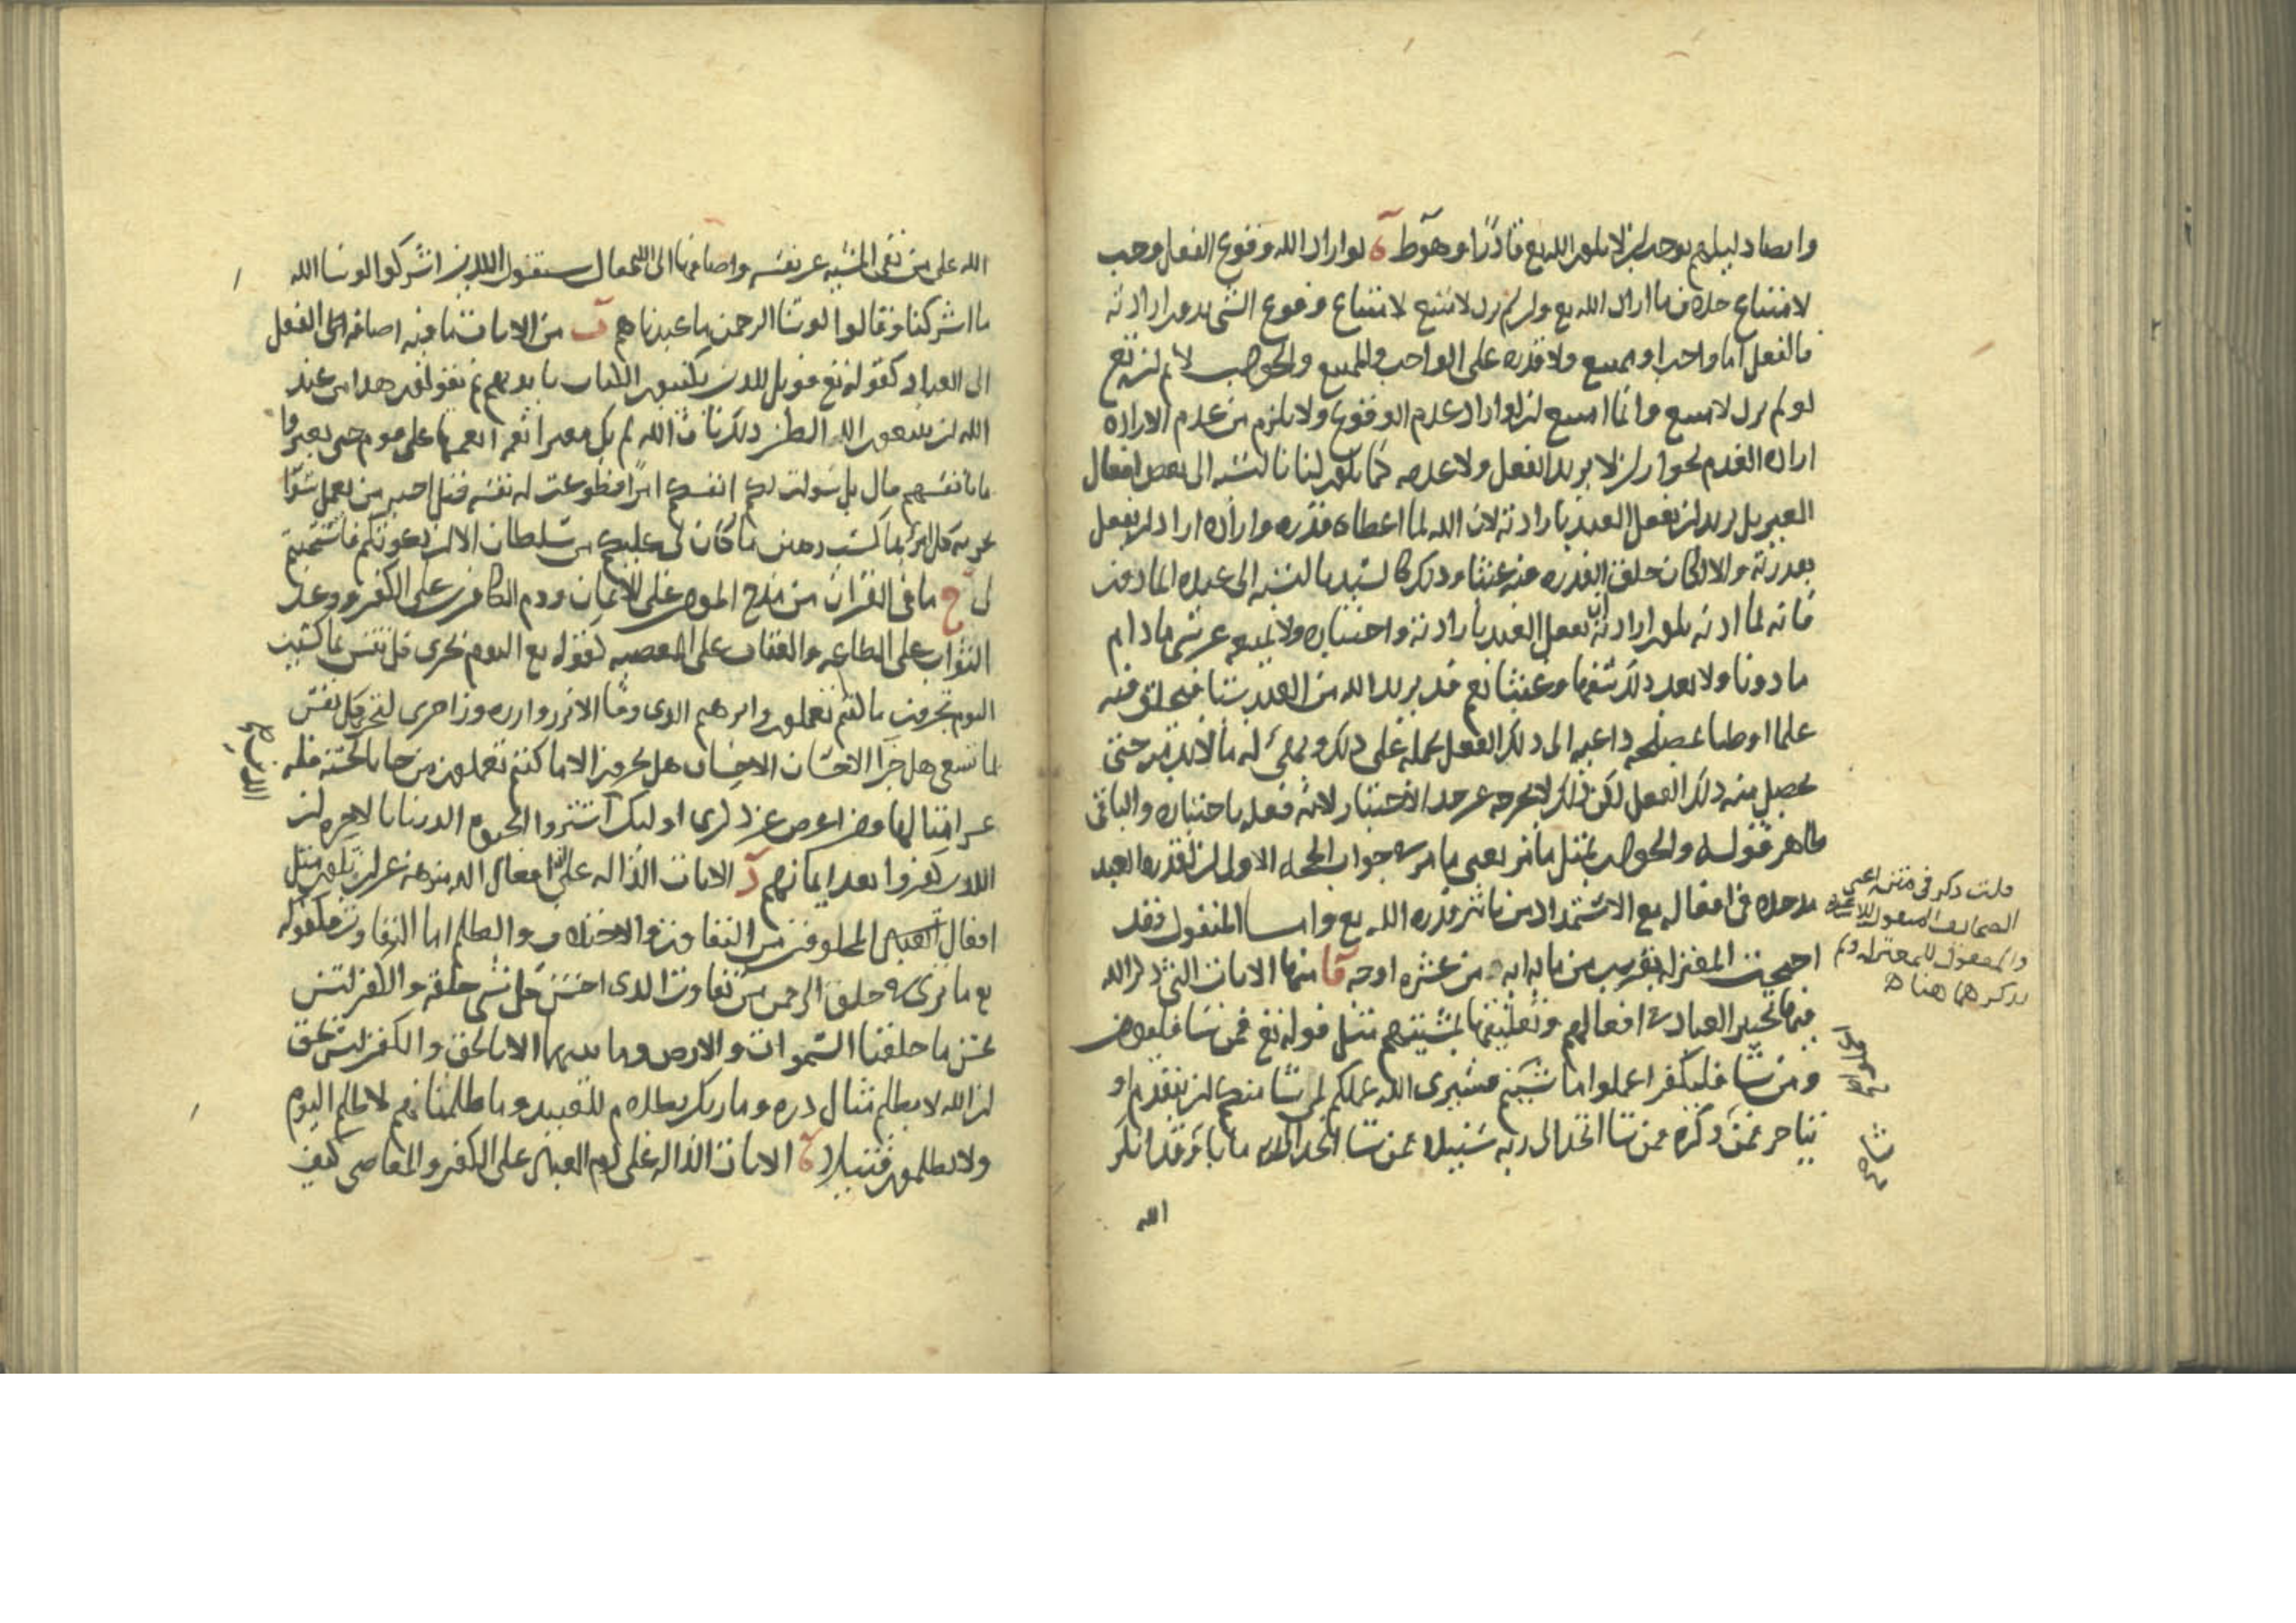 وايضا دليلهم يوجب ان لا يكون الله تع قادرا وهو ط ة لو اراد الله وقوع الفعل وجب
لامتناع خلاف ما اراد الله تع وان لم يرد لامتنع لامتناع وقوع الشي بدون ارادته
فالفعل اما واجب او ممتنع ولا قدره على الواجب والممتنع والجواب لا نم انه تع
لو لم يرد لامتنع وانما امتنع ان لو اراد عدم الوقوع ولا يلزم من عدم الاراده
اراده العدم لجواز ان لا يريد الفعل ولا عدمه كما يكون لنا بالنسبه الى بعض افعال
الغير بل يريد ان يفعل العبد بارادته لان الله لما اعطاه قدره واراده اراد ان يفعل
بقدرته والا لكان خلق القدره فيه عبثا وذلك كالسيد بالنسبه الى عبده الماذون
فانه لما اذنه يكون ارادته ان يفعل العبد بارادته واختياره ولا يمنعه عن شي ما دام
ماذونا ولا يعد ذلك سفها وعبثا نعم قد يريد الله من العبد شيا فيخلق فيه
علما او ظنا بمصلحه داعيه الى ذلك الفعل يحمله على ذلك ويهيئ له ما لابد منه حتى
يحصل منه ذلك الفعل لكن ذلك لا يخرجه عن حد الاختيار لانه فعله باختياره والباقي
ظاهر قوله والجواب بمثل ما مر يعني ما مر في جواب الحجه الاولى ان لقدره العبد
مدخلا في افعاله مع الاستمداد من تاثير قدره الله تع واما المنقول فقد
احتجت المعتزله بقريب من مايه ايه من عشره اوجه آ منها الايات التي ذكر الله
فيها تخيير العباد في افعالهم وتعليقها بمشيتهم مثل قوله تع فمن شا فليومن
ومن شا فليكفر اعملوا ما شيتم فسيرى الله عملكم لمن شا منكم ان يتقدم او
يتاخر فمن شا ذكره فمن شا اتخذ الى ربه سبيلا فمن شا اتخذ الى ربه مابا وقد انكر
الله
قلت ذكر في متنه اعني
الصحايف المنقول للاشعريه
والمعقول للمعتزله ولم
يذكرهما هنا
الله على من نفى المشيه عن نفسه واضافها الى الله فقال سيقول الذين اشركوا لو شا الله
ما اشركنا وقالوا لو شا الرحمن ما عبدناهم ب من الايات ما فيه اضافه الفعل
الى العباد كقوله تع فويل للذين يكتبون الكتاب بايديهم ثم يقولون هذا من عند
الله ان يتبعون الا الظن ذلك بان الله لم يك مغيرا نعمه انعمها على قوم حتى يغيروا
ما بانفسهم قال بل سولت لكم انفسكم امرا فطوعت له نفسه قتل اخيه من يعمل سوا
يجز به كل امرئ بما كسب رهين ما كان لي عليكم من سلطان الا ان دعوتكم فاستجبتم
لي ج ما في القران من مدح المومن على الايمان وذم الكافر على الكفر ووعد
الثواب على الطاعه والعقاب على المعصيه كقوله تع اليوم تجزى كل نفس بما كسبت
اليوم تجزون ما كنتم تعملون وابرهيم الذي وفى الا تزر وازره وزر اخرى لتجزى كل نفس
بما تسعى هل جزا الاحسان الا الاحسان هل تجزون الا ما كنتم تعملون من جا بالحسنه فله
عشر امثالها ومن اعرض عن ذكرى اوليك الذين اشتروا الحيوه الدنيا بالاخره ان
الذين كفروا بعد ايمانهم د الايات الداله على ان افعال الله منزهه عن ان يكون مثل
افعال المخلوقين من التفاوت والاختلاف والظلم اما التفاوت فكقوله
تع ما ترى في خلق الرحمن من تفاوت الذي احسن كل شي خلقه والكفر ليس
بحسن ما خلقنا السموات والارض وما بينهما الا بالحق والكفر ليس بحق
ان الله لا يظلم مثقال ذره وما ربك بظلام للعبيد وما ظلمناهم لا ظلم اليوم
ولا يظلمون فتيلا ه الايات الداله على ذم العباد على الكفر والمعاصي كيف